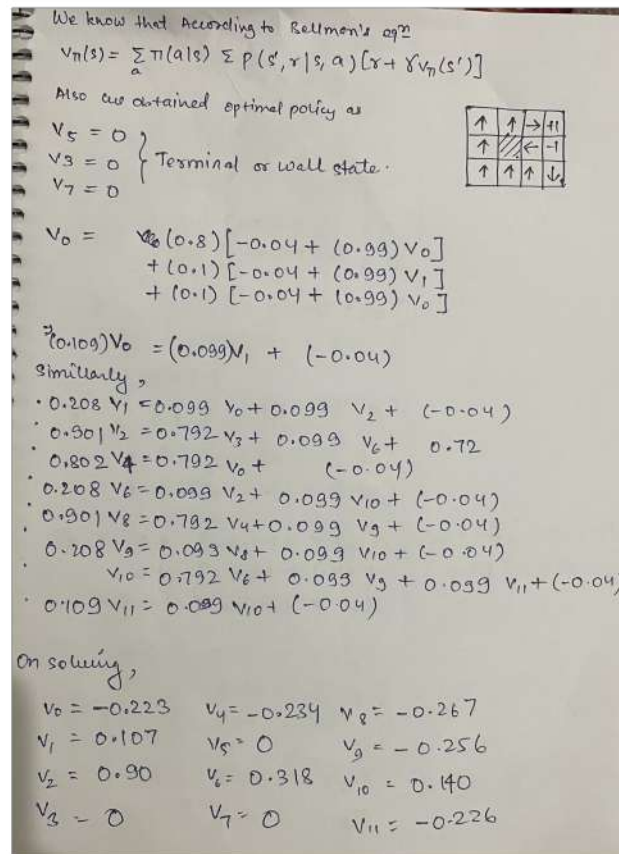 We know that According to Bellman's eqn
Vπ(s) = Σ π(a|s) Σ p(s', r | s, a) [r + γVπ(s')]
a
Also our obtained optimal policy as
V5 = 0
V3 = 0 } Terminal or wall state.
V7 = 0
↑ ↑ → +1
↑ ← -1
↑ ↑ ↑ ↓
V0 = (0.8) [-0.04 + (0.99) V0]
+ (0.1) [-0.04 + (0.99) V1]
+ (0.1) [-0.04 + (0.99) V0]
⇒ (0.109)V0 = (0.099)V1 + (-0.04)
Simillarly,
• 0.208 V1 = 0.099 V0 + 0.099 V2 + (-0.04)
• 0.901 V2 = 0.792 V3 + 0.099 V6 + 0.72
• 0.802 V4 = 0.792 V0 + (-0.04)
0.208 V6 = 0.099 V2 + 0.099 V10 + (-0.04)
• 0.901 V8 = 0.792 V4 + 0.099 V9 + (-0.04)
• 0.208 V9 = 0.099 V8 + 0.099 V10 + (-0.04)
V10 = 0.792 V6 + 0.099 V9 + 0.099 V11 + (-0.04)
• 0.109 V11 = 0.099 V10 + (-0.04)
On solving,
V0 = -0.223 V4 = -0.234 V8 = -0.267
V1 = 0.107 V5 = 0 V9 = -0.256
V2 = 0.90 V6 = 0.318 V10 = 0.140
V3 = 0 V7 = 0 V11 = -0.226